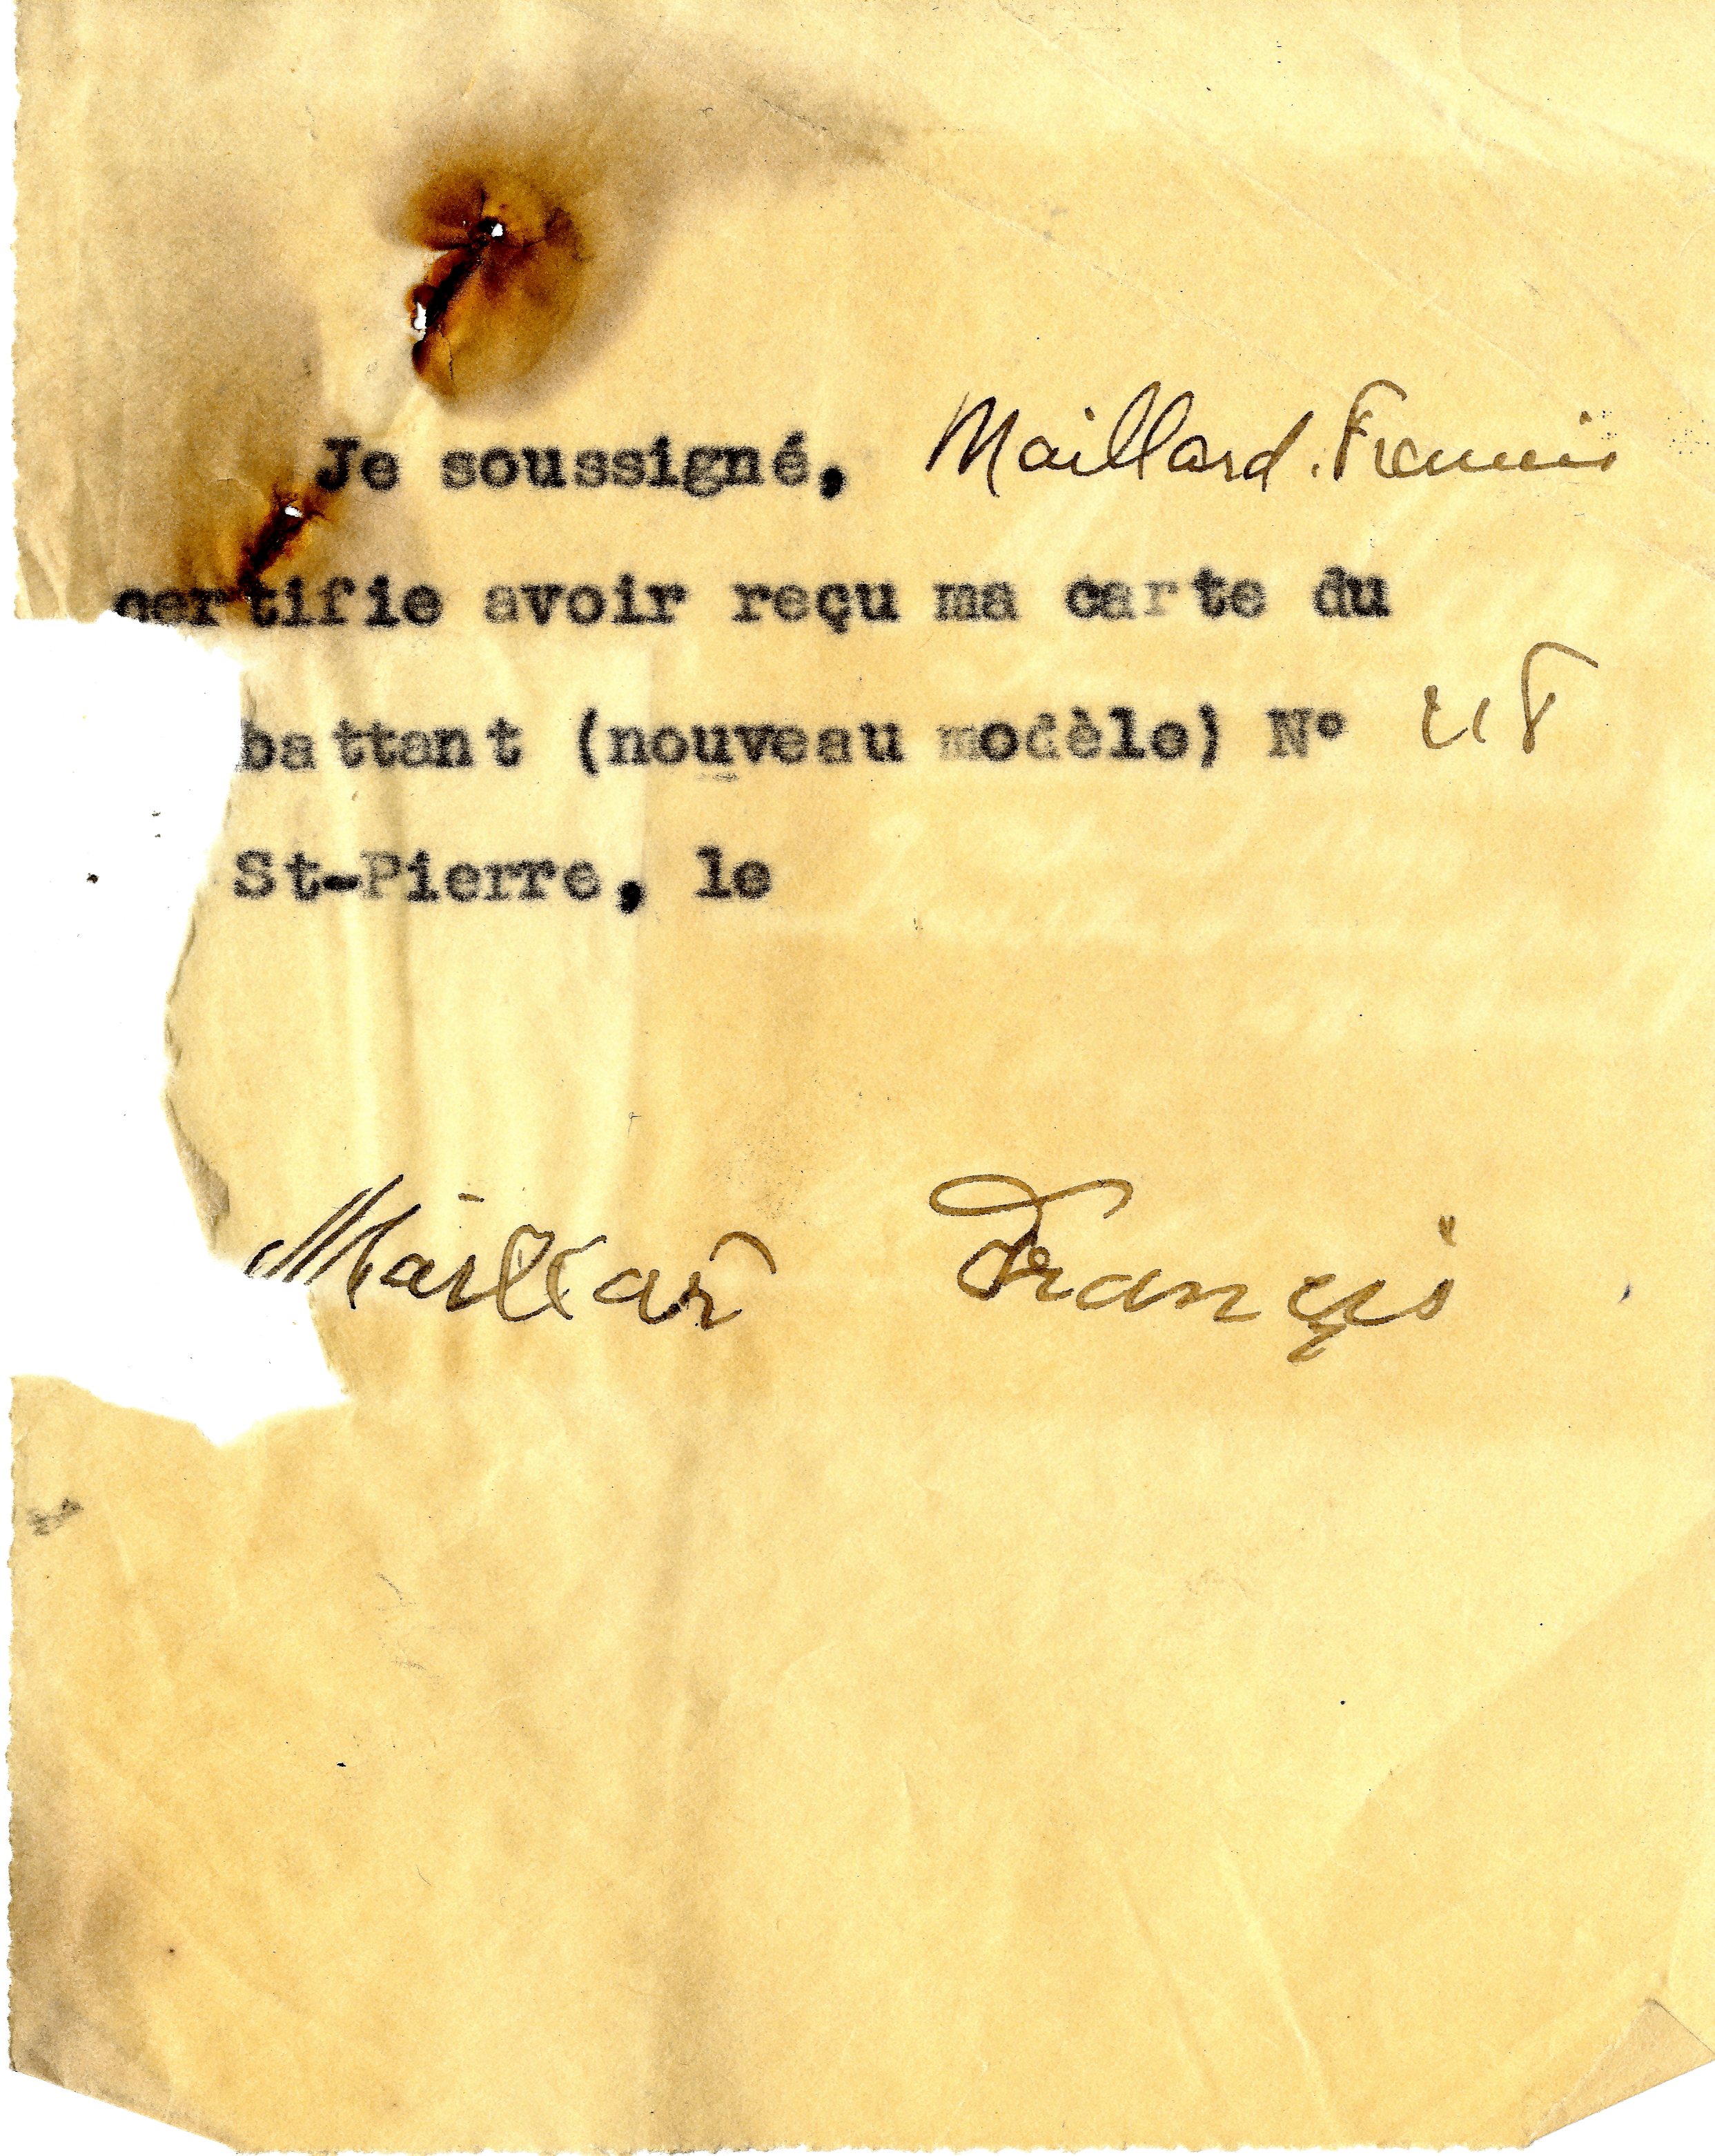 Je soussigné, Maillard. Francis
certifie avoir reçu ma carte du
battant (nouveau modèle) N°
St-Pierre, le
Maillar Francis